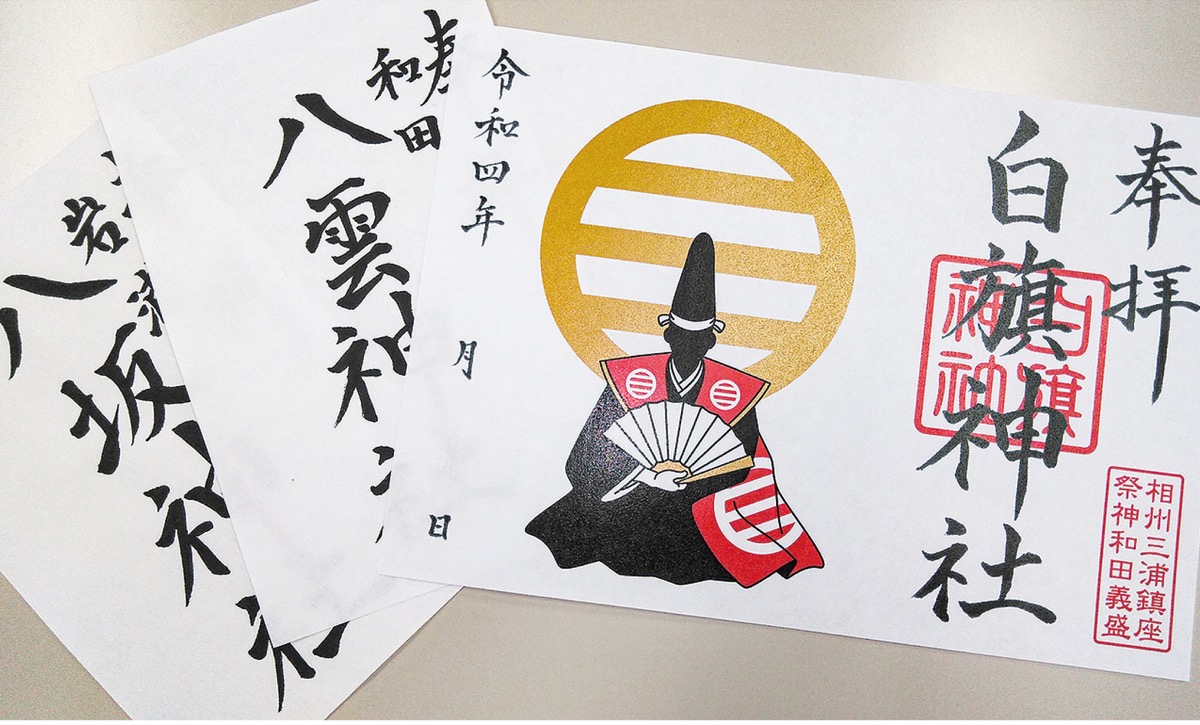 奉拝
白旗神社
白旗
神社
相州三浦鎮座
祭神和田義盛
令和四年
月
日
和田
八雲神
岩
八坂神社